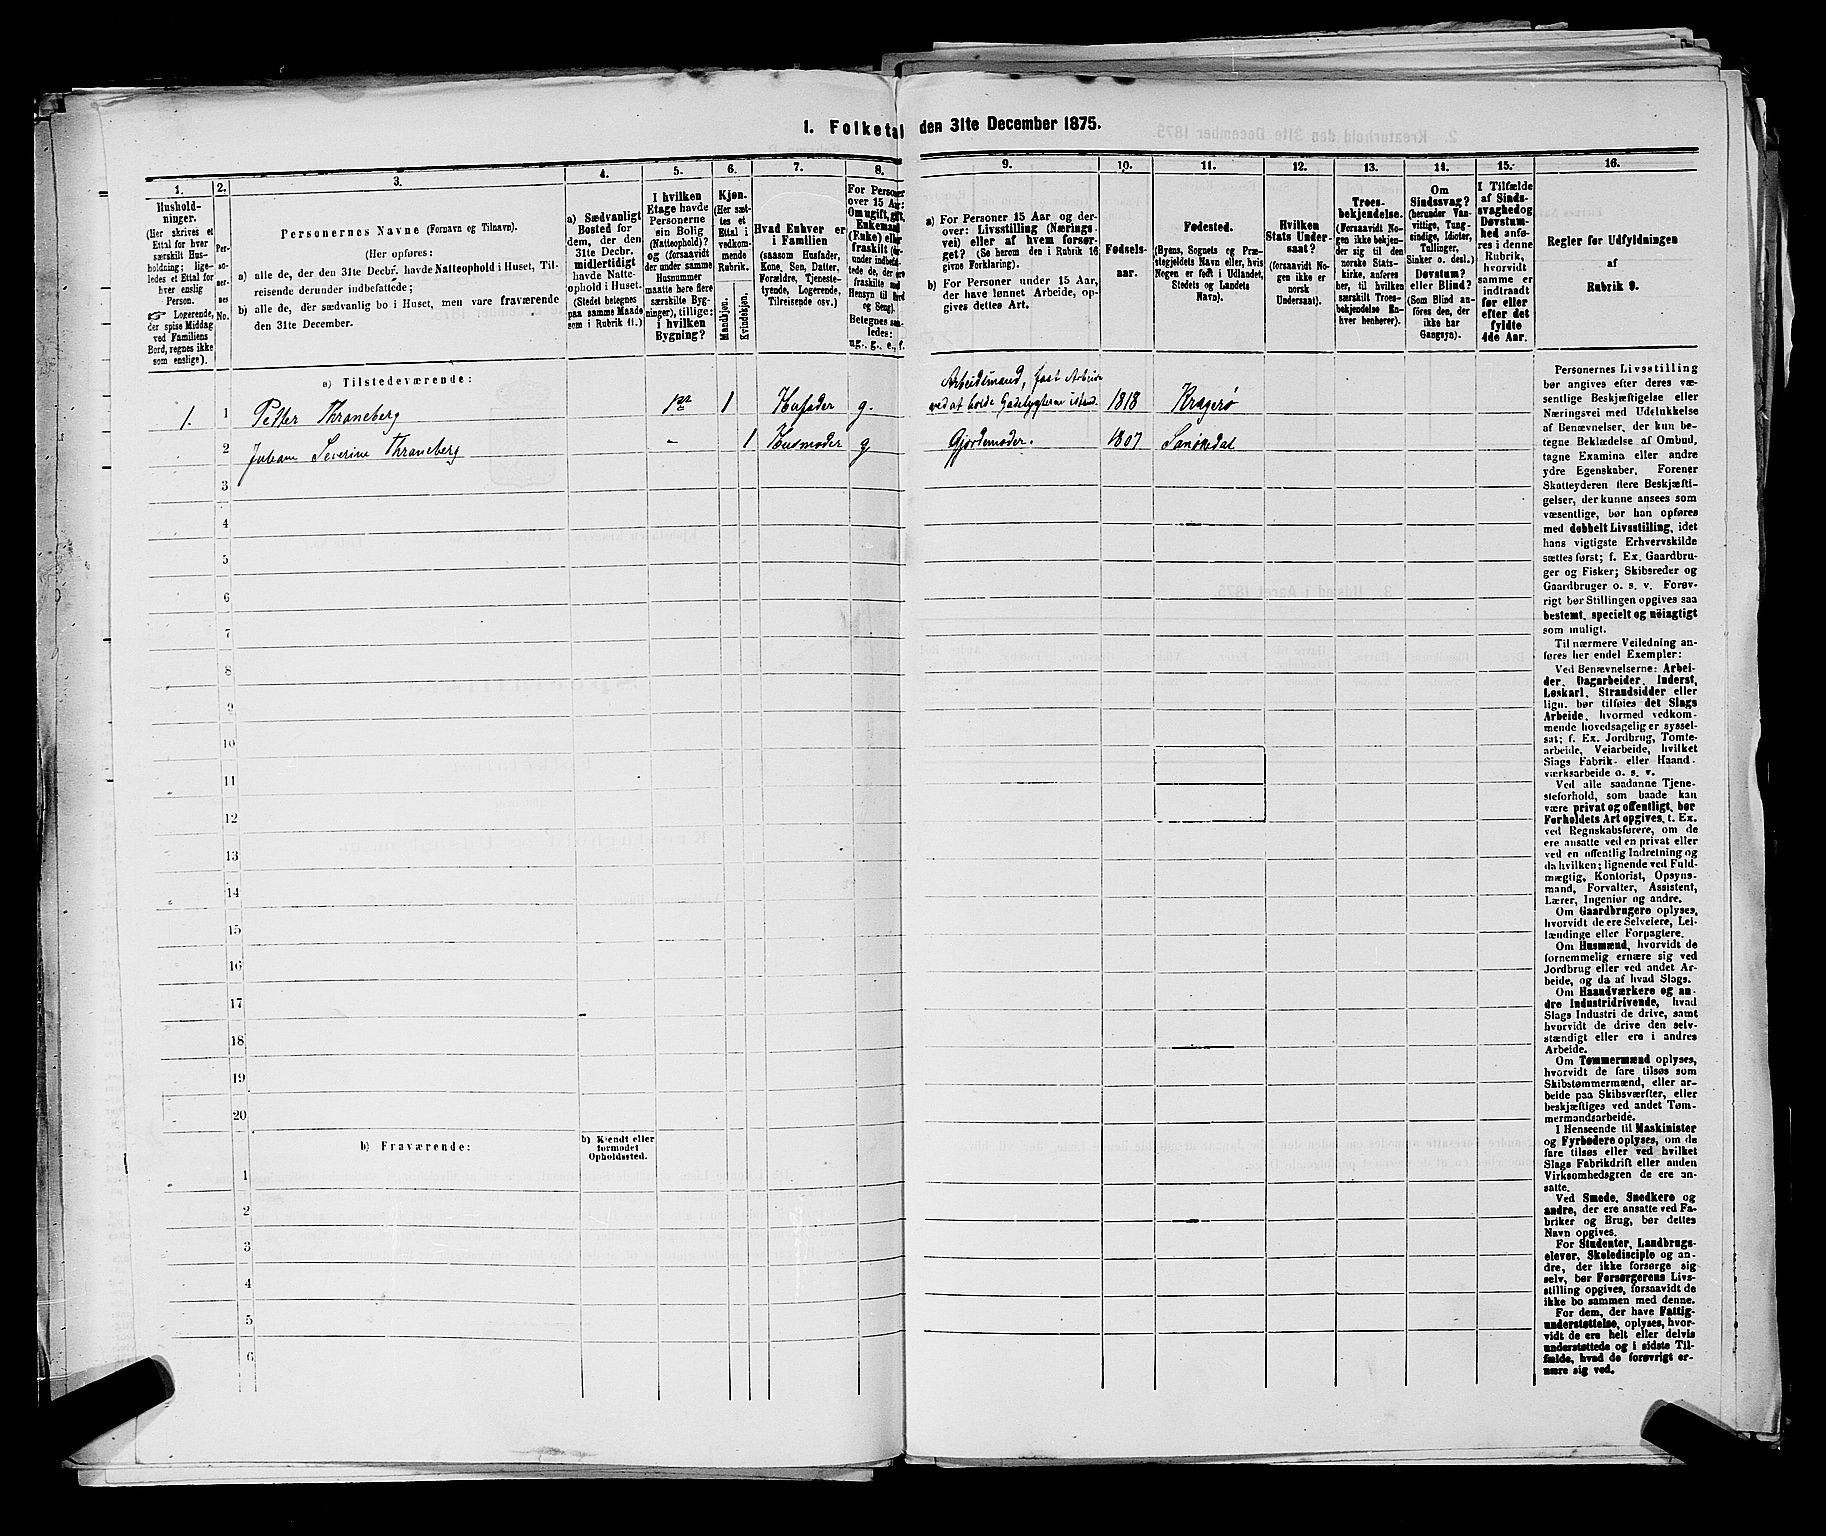 1. Folketal den 31te December 1875.
1.
2.
3.
4.
5.
6.
7.
8.
9.
10.
11.
12.
13.
14.
15.
16.
Husholdninger.
(Her skrives et
Ettal for hver
særskilt Husholdning;
ligeledes et Ettal for
hver enslig
Person.
☞ Logerende,
der spise Middag
ved Familiens
Bord, regnes ikke
som enslige).
Personernes
No.
Personernes Navne (Fornavn og Tilnavn).
(Her opføres:
a) alle de, der den 31te Decbr. havde Natteophold i Huset, Tilreisende derunder indbefattede;
b) alle de, der sædvanlig bo i Huset, men vare fraværende
den 31te December.
a) Sædvanligt
Bosted for
dem, der den
31te Decbr.
midlertidigt
havde Natteophold i Huset.
(Stedet betegnes
paa samme Maade
som i Rubrik 11.)
I hvilken
Etage havde
Personerne
sin Bolig
(Natteophold)?
og (forsaavidt
der under samme
Husnummer
maatte høre flere
særskilte Bygninger), tillige:
i hvilken
Bygning?
Kjøn.
(Her sættes et
Ettal i
vedkommende
Rubrik.
Mandkjøn.
Kvindekjøn.
Hvad Enhver er
i Familien
(saasom Husfader,
Kone, Søn, Datter,
Forældre, Tjenestetyende, Logerende,
Tilreisende osv.)
For Personer
over 15 Aar:
Om ugift, gift,
Enkemand
(Enke) eller
fraskilt
Betegnes saaledes:
ug., g., e., f.
a) For Personer 15 Aar og derover: Livsstilling (Næringsvei) eller af hvem forsørget? (Se herom den i Rubrik 16
givne Forklaring).
b) For Personer under 15 Aar,
der have lønnet Arbeide, opgives dettes Art.
Fødselsaar.
Fødested.
(Byens, Sognets og Præstegjeldets Navn eller, hvis
Nogen er født i Udlandet,
Stedets og Landets
Navn).
Hvilken
Stats Undersaat?
(forsaavidt Nogen ikke er
norsk
Undersaat).
Troesbekjendelse.
(Forsaavidt Nogen ikke bekjender sig til den
norske Statskirke, anføres
her, til hvilken
særskilt Troesbekjendelse Enhver henhører).
Om
Sindssvag?
(herunder Vanvittige, Tungsindige, Idioter,
Tullinger,
Sinker o. desl.)
Døvstum?
eller Blind?
(Som Blind anføres den, der
ikke har
Gangsyn).
I Tilfælde
af Sindssvaghed og
Døvstumhed anføres i denne
Rubrik,
hvorvidt
samme er
indtraadt
før eller
efter det
fyldte
4de Aar.
Regler for Udfyldningen
af
Rubrik 9.
a) Tilstedeværende:
1. 1 Petter Thraneberg 1 Husfader g. Arbeidsmand, fast Arbeide
1818 Kragerø
2 Severine Thraneberg 1 Husmoder g Gjordemoder. 1807 Sanøkedal
3
4
5
6
7
8
9
10
11
12
13
14
15
16
17
18
19
20
b) Fraværende:
b) Kjendt eller
formodet
Opholdssted.
1
2
3
4
5
6
Personernes Livsstilling
bør angives efter deres væsentlige Beskjæftigelse eller
Næringsvei med Udelukkelse
af Benævnelser, der kun betegne Beklædelse af Ombud,
tagne Examina eller andre
ydre Egenskaber. Forener
Skatteyderen flere Beskjæftigelser, der kunne ansees som
væsentlige, bør han opføres
med dobbelt Livsstilling, idet
hans vigtigste Erhvervskilde
sættes først; f. Ex. Gaardbruger og Fisker; Skibsreder og
Gaardbruger o. s. v. Forøvrigt bør Stillingen opgives saa
bestemt, specielt og nöiagtigt
som muligt.
Til nærmere Veiledning anføres her endel Exempler:
Ved Benævnelserne: Arbeider, Dagarbeider, Inderst,
Løskarl, Strandsidder eller
lign. bør tilføies det Slags
Arbeide, hvormed vedkommende hovedsagelig er sysselsat; f. Ex. Jordbrug, Tomtearbeide, Veiarbeide, hvilket
Slags Fabrik- eller Haandværksarbeide o. s. v.
Ved alle saadanne Tjenesteforhold, som baade kan
være privat og offentligt, bør
Forholdets Art opgives, t. Ex.
ved Regnskabsførere, om de
ere ansatte ved en privat eller
ved en offentlig Indretning og
da hvilken; lignende ved Fuldmægtig, Kontorist, Opsynsmand, Forvalter, Assistent,
Lærer, Ingeniør og andre.
Om Gaardbrugere oplyses,
hvorvidt de ere Selveiere, Leilændinge eller Forpagtere.
Om Husmænd, hvorvidt de
fornemmelig ernære sig ved
Jordbrug eller ved andet Arbeide, og da af hvad Slags.
Om Haandværkere og andre Industridrivende, hvad
Slags Industri de drive, samt
hvorvidt de drive den selvstændigt eller ere i andres
Arbeide.
Om Tømmermænd oplyses,
hvorvidt de fare tilsøs som
Skibstømmermænd, eller arbeide paa Skibsværfter, eller
beskjæftiges ved andet Tømmermandsarbeide.
I Henseende til Maskinister
og Fyrbødere oplyses, om de
fare tilsøs eller ved hvilket
Slags Fabrikdrift eller anden
Virksomhedsgren de ere ansatte.
Ved Smede, Snedkere og
andre, der ere ansatte ved Fabriker og Brug, bør dettes
Navn opgives.
For Studenter, Landbrugselever, Skoledisciple og andre, der ikke forsørge sig
selv, bør Forsørgerens Livsstilling opgives, forsaavidt de
ikke bo sammen med denne.
For dem, der have Fattigunderstøttelse, oplyses, hvorvidt de ere helt eller delvis
understøttede og i sidste Tilfælde, hvad de forøvrigt ernære sig ved.